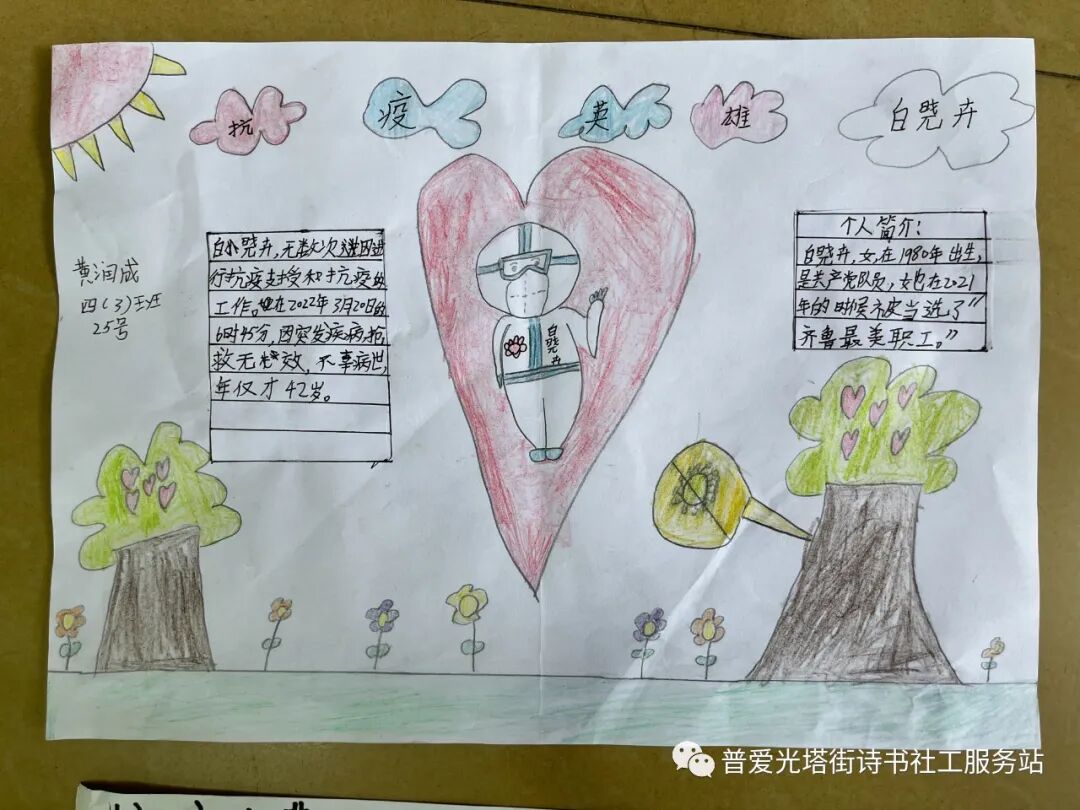 抗 疫 英 雄 白晓卉
黄润成
四(3)班
25号
白晓卉,无数次
行抗疫支援和抗疫的
工作。她在2022年3月20日的
6时45分,因突发疾病,抢
救无效,不幸病世,
年仅才42岁。
白晓卉
个人简介:
白晓卉,女,在1980年出生,
是共产党队员,她在2021
年的时候被当选了“
齐鲁最美职工。”
普爱光塔街诗书社工服务站